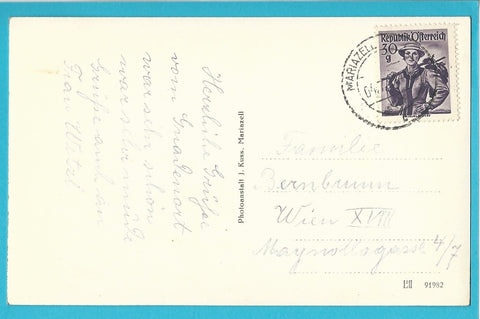 Herzliche Grüße
vom Gnadenort.
war sehr schön
wars ihr müde
Grüße auch an
Frau
Photoanstalt J. Kuss, Mariazell
MARIAZELL
Republik Österreich
30
g
Familie
Bernbrunn
Wien XVIII
Maynollogasse 4/7
91982